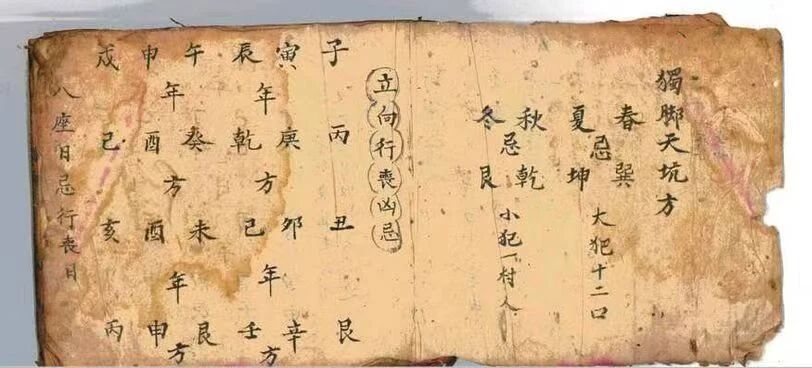 獨脚天坑方
春巽
忌
大犯十二口
夏坤
秋乾
忌
小犯一村人
冬艮
立向行喪凶忌
子丙丑艮
寅庚卯辛
年方年方
辰乾己壬
午癸未艮
年方年方
申酉酉申
戌己亥丙
八座日忌行喪日